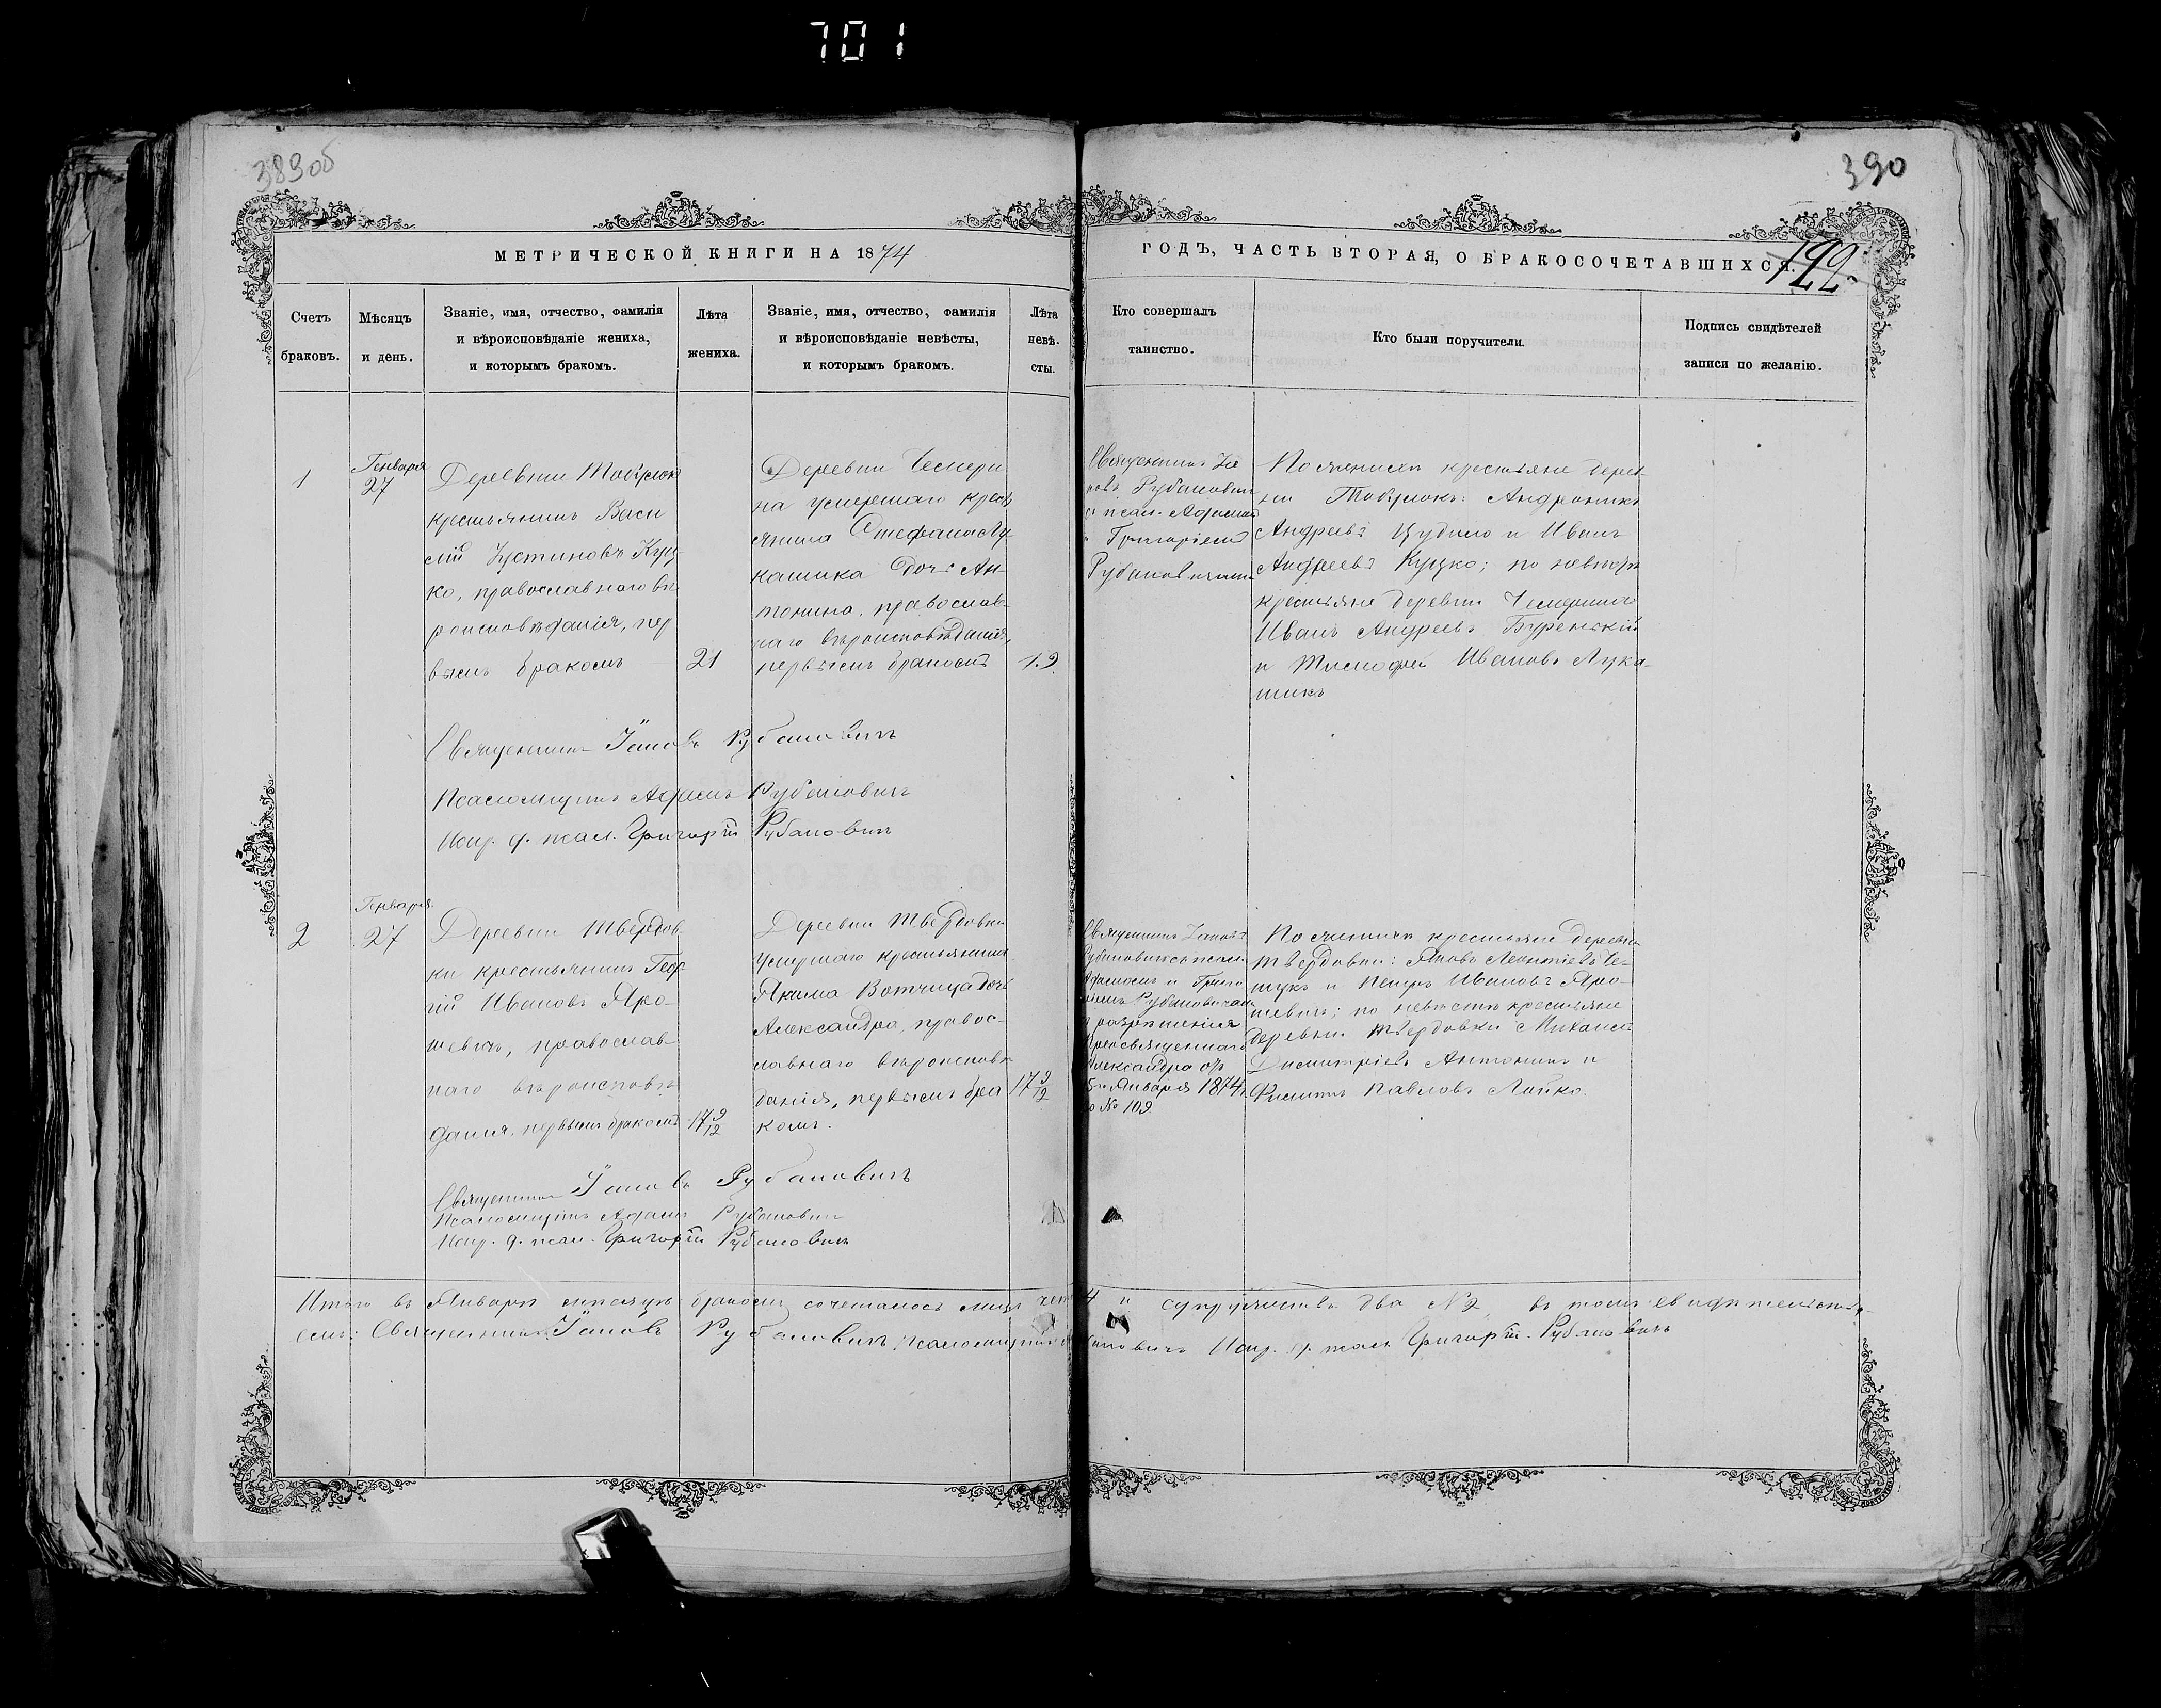 701
389об
390
МЕТРИЧЕСКОЙ КНИГИ НА 1874
ГОДЪ, ЧАСТЬ ВТОРАЯ, О БРАКОСОЧЕТАВШИХСЯ.
122
Счетъ
браковъ.
Мѣсяцъ
и день.
Званіе, имя, отчество, фамилія
и вѣроисповѣданіе жениха,
и которымъ бракомъ.
Лѣта
жениха.
Званіе, имя, отчество, фамилія
и вѣроисповѣданіе невѣсты,
и которымъ бракомъ.
Лѣта
невѣ-
сты.
Кто совершалъ
таинство.
Кто были поручители.
Подпись свидѣтелей
записи по желанію.
1
Генваря
27
Деревни Тобулокъ
крестьянинъ Васи
лій Іустиновъ Куц-
ко, православнаго вѣ
роисповѣданія, пер
вымъ бракомъ
21
Деревни Чемери
на умершаго крест
янина Стефана Лу-
кашика дочь Ан-
тонина, православ-
наго вѣроисповѣданія,
первымъ бракомъ
19
Священникъ Іа
ковъ Рубановичъ
съ псал. Адамомъ
и Григоріемъ
Рубановичами
По женихѣ крестьяне дерев-
ни Тобулокъ: Андроникъ
Андреевъ Цудило и Иванъ
Андреевъ Куцко; по невѣстѣ
крестьяне деревни Чемерина
Иванъ Андреевъ Буренскій
и Тимофей Ивановъ Лука-
шикъ
Священникъ Іаковъ Рубановичъ
Псаломщикъ Адамъ Рубановичъ
Испр. д. псал. Григорій Рубановичъ
2
Генваря
27
Деревни Твердов
ки крестьянинъ Геор
гій Ивановъ Яро-
шевичъ, православ-
наго вѣроисповѣ
данія, первымъ бракомъ
17 9/12
Деревни Твердовки
умершаго крестьянина
Якима Вотчица дочь
Александра, правос-
лавнаго вѣроисповѣ
данія, первымъ бра
комъ.
17 9/12
Священникъ Іаковъ
Рубановичъ съ псал.
Адамомъ и Григо
ріемъ Рубановичами
разрѣшенія
Преосвященнаго
Александра отъ
Января 1874 г.
№ 109
По женихѣ крестьяне деревни
Твердовки: Яковъ Леонтіевъ Че-
шукъ и Петръ Ивановъ Яро-
шевичъ; по невѣстѣ крестьяне
деревни Твердовки Михаилъ
Димитріевъ Антоникъ и
Филиппъ Павловъ Лойко.
Священникъ Іаковъ Рубановичъ
Псаломщикъ Адамъ Рубановичъ
Испр. д. псал. Григорій Рубановичъ
Итого въ Январѣ мѣсяцѣ бракомъ сочеталось лицъ 4 супружествъ два № 2, въ томъ свидѣтельству-
емъ: Священникъ Іаковъ Рубановичъ Псаломщикъ Испр. д. псал. Григорій Рубановичъ